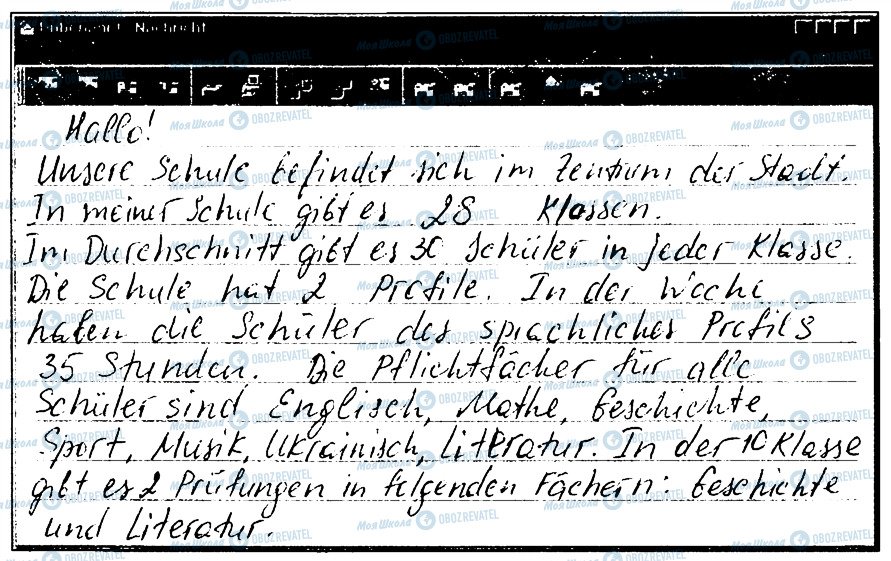 Unbenannt Nachricht
Hallo!
Unsere Schule befindet sich im Zentrum der Stadt.
In meiner Schule gibt es 28 Klassen.
Im Durchschnitt gibt es 30 Schüler in jeder Klasse.
Die Schule hat 2 Profile. In der Woche
haben die Schüler des sprachliches Profils
35 Stunden. Die Pflichtfächer für alle
Schüler sind Englisch, Mathe, Geschichte,
Sport, Musik, Ukrainisch, Literatur. In der 10 Klasse
gibt es 2 Prüfungen in folgenden Fächern: Geschichte
und Literatur.
Моя Школа OBOZREVATEL